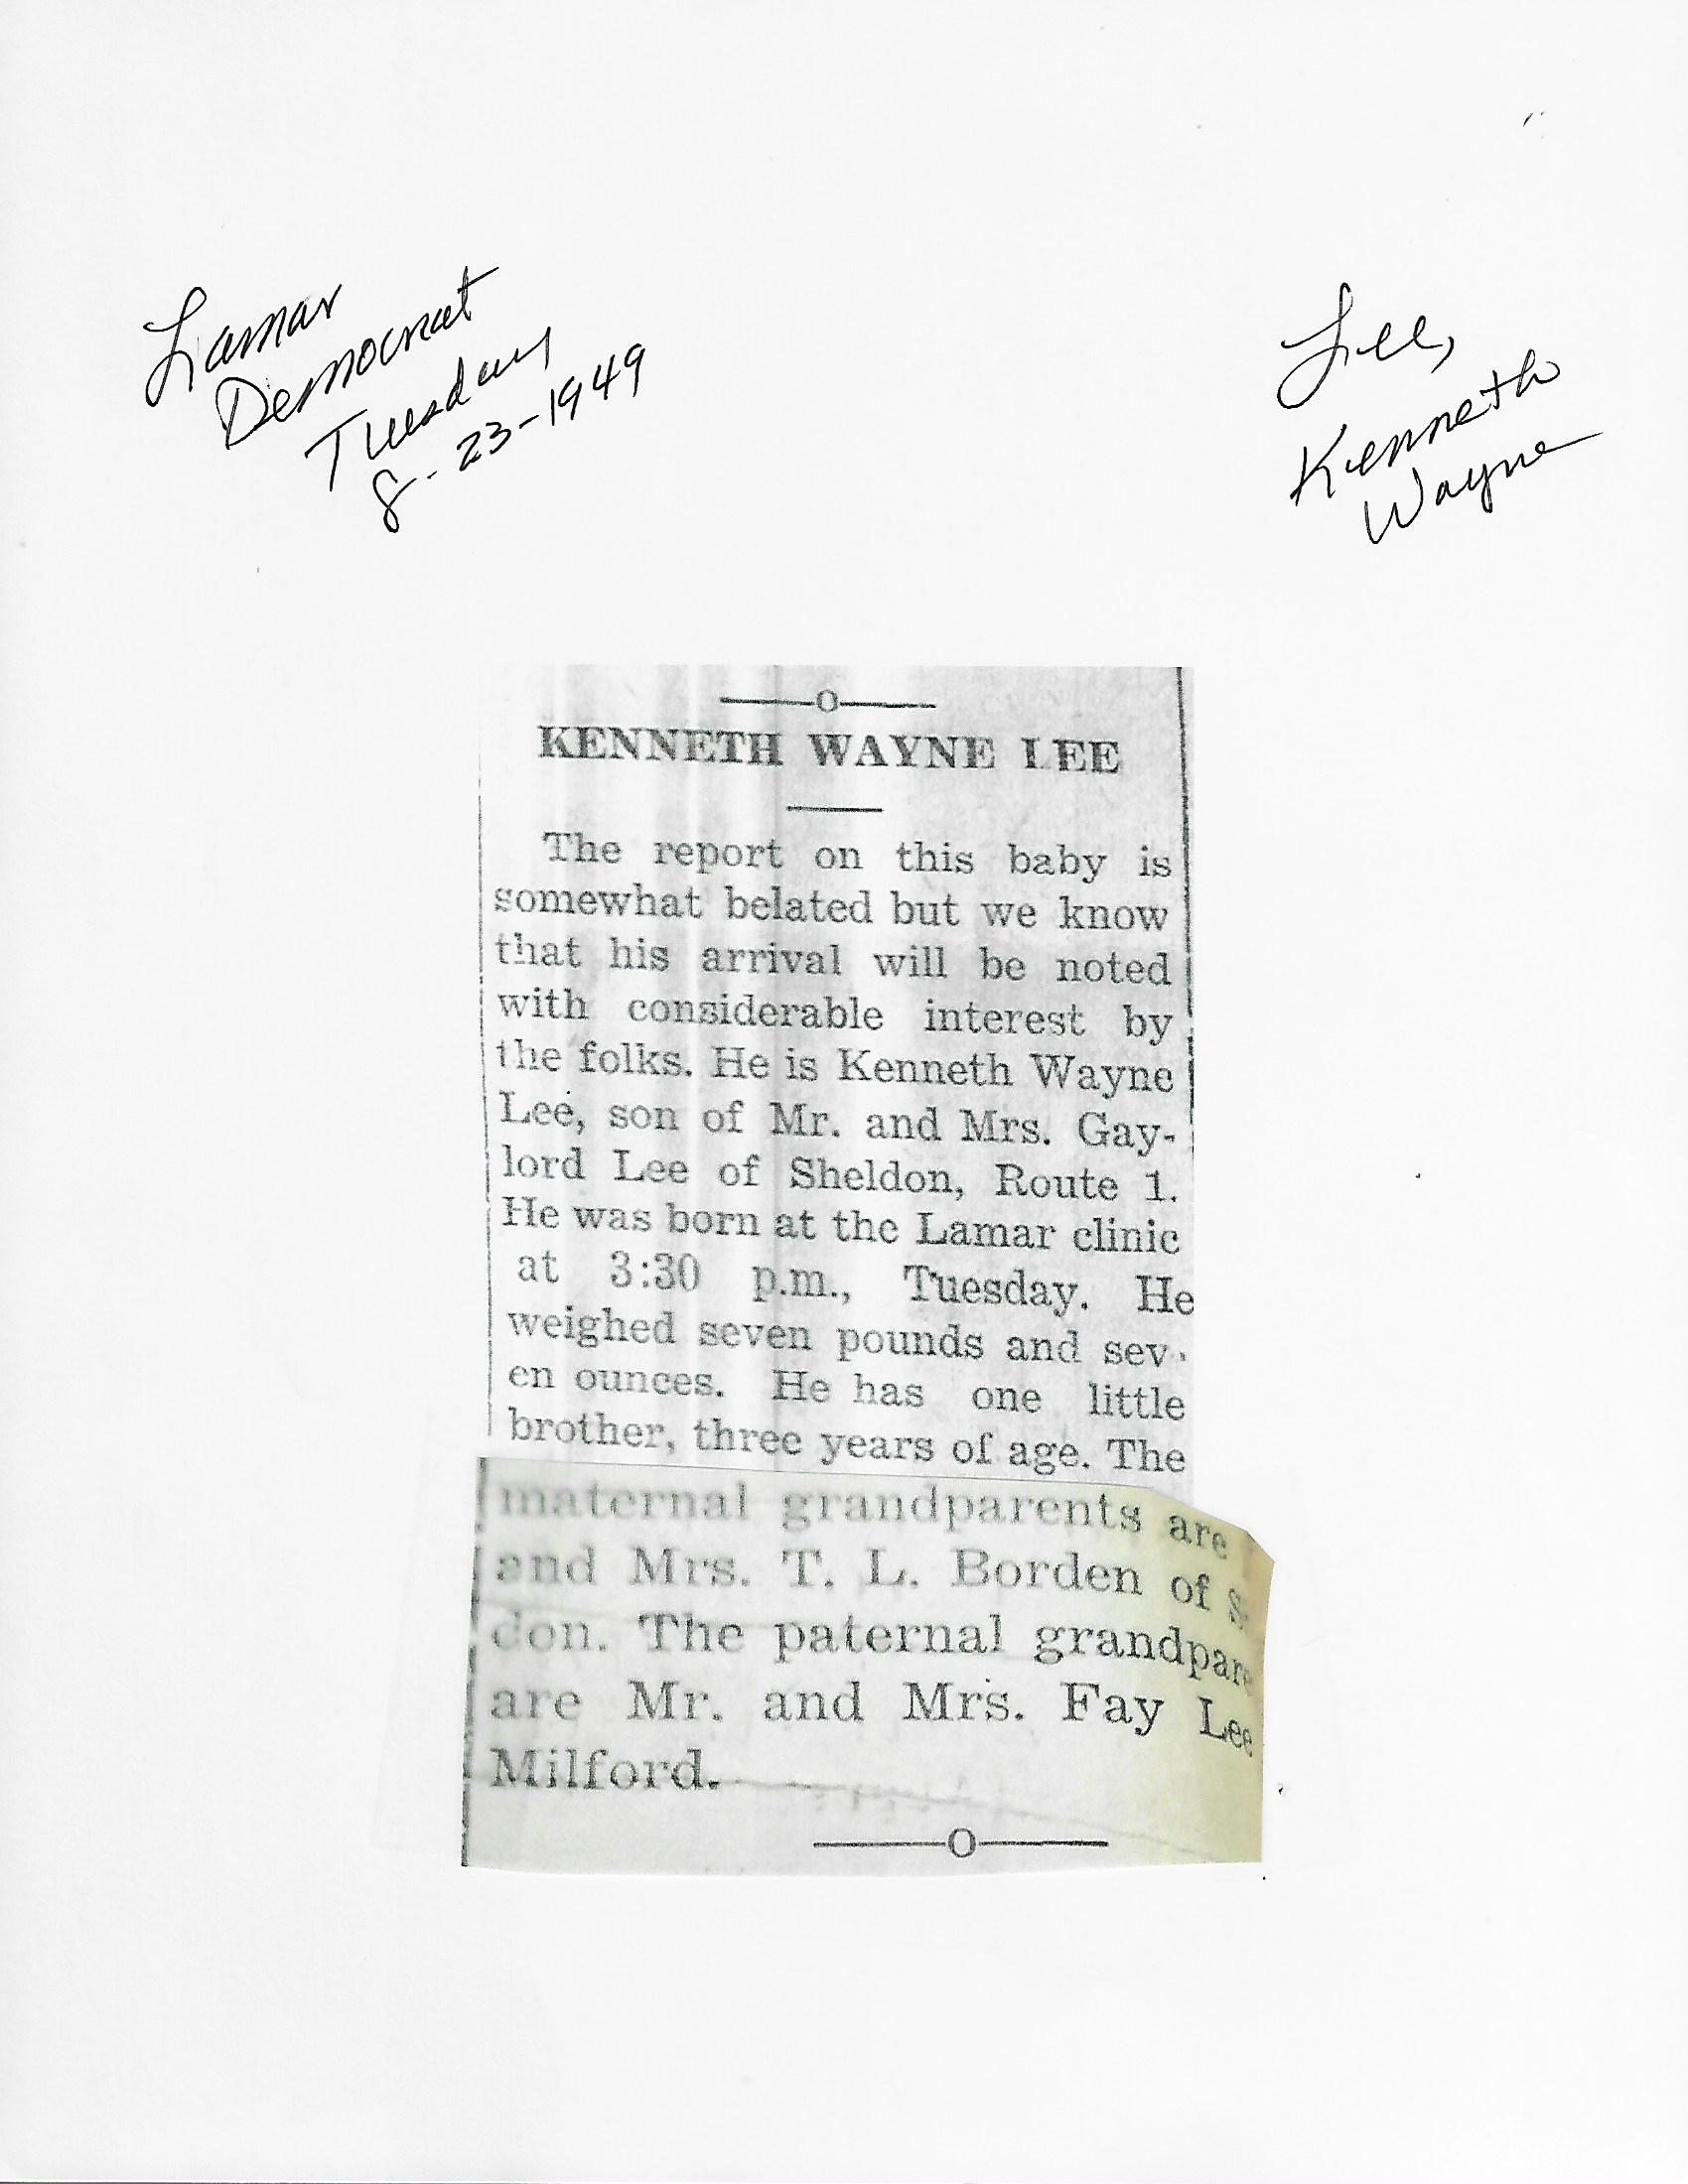 Lamar
Democrat
Tuesday
8-23-1949
Lee,
Kenneth
Wayne
KENNETH WAYNE LEE
The report on this baby is
somewhat belated but we know
that his arrival will be noted
with considerable interest by
the folks. He is Kenneth Wayne
Lee, son of Mr. and Mrs. Gay-
lord Lee of Sheldon, Route 1.
He was born at the Lamar clinic
at 3:30 p.m., Tuesday. He
weighed seven pounds and sev-
en ounces. He has one little
brother, three years of age. The
maternal grandparents are
and Mrs. T. L. Borden of
don. The paternal grandpare
are Mr. and Mrs. Fay Lee
Milford.